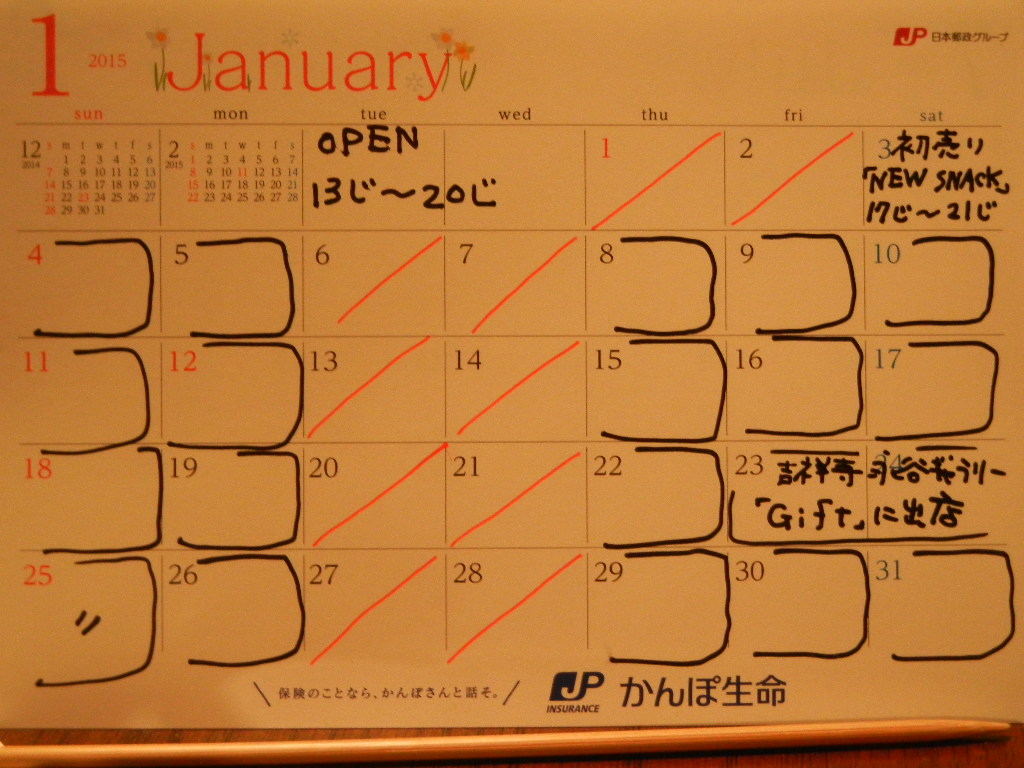 1 2015 January
JP 日本郵政グループ
sun mon tue wed thu fri sat
12 2014
s m t w t f s
1 2 3 4 5 6
7 8 9 10 11 12 13
14 15 16 17 18 19 20
21 22 23 24 25 26 27
28 29 30 31
2 2015
s m t w t f s
1 2 3 4 5 6 7
8 9 10 11 12 13 14
15 16 17 18 19 20 21
22 23 24 25 26 27 28
OPEN
13じ〜20じ
1 2 3
初売り
「NEW SNACK」
17じ〜21じ
4 5 6 7 8 9 10
11 12 13 14 15 16 17
18 19 20 21 22 23 24
吉祥寺 ラリー
「Gift」に出店
25 26 27 28 29 30 31
〃
\ 保険のことなら、かんぽさんと話そ。 /
JP INSURANCE かんぽ生命